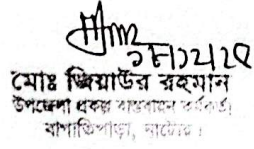 মোঃ জিয়াউর রহমান
উপজেলা প্রকল্প বাস্তবায়ন কর্মকর্তা
বাগাতিপাড়া, নাটোর।